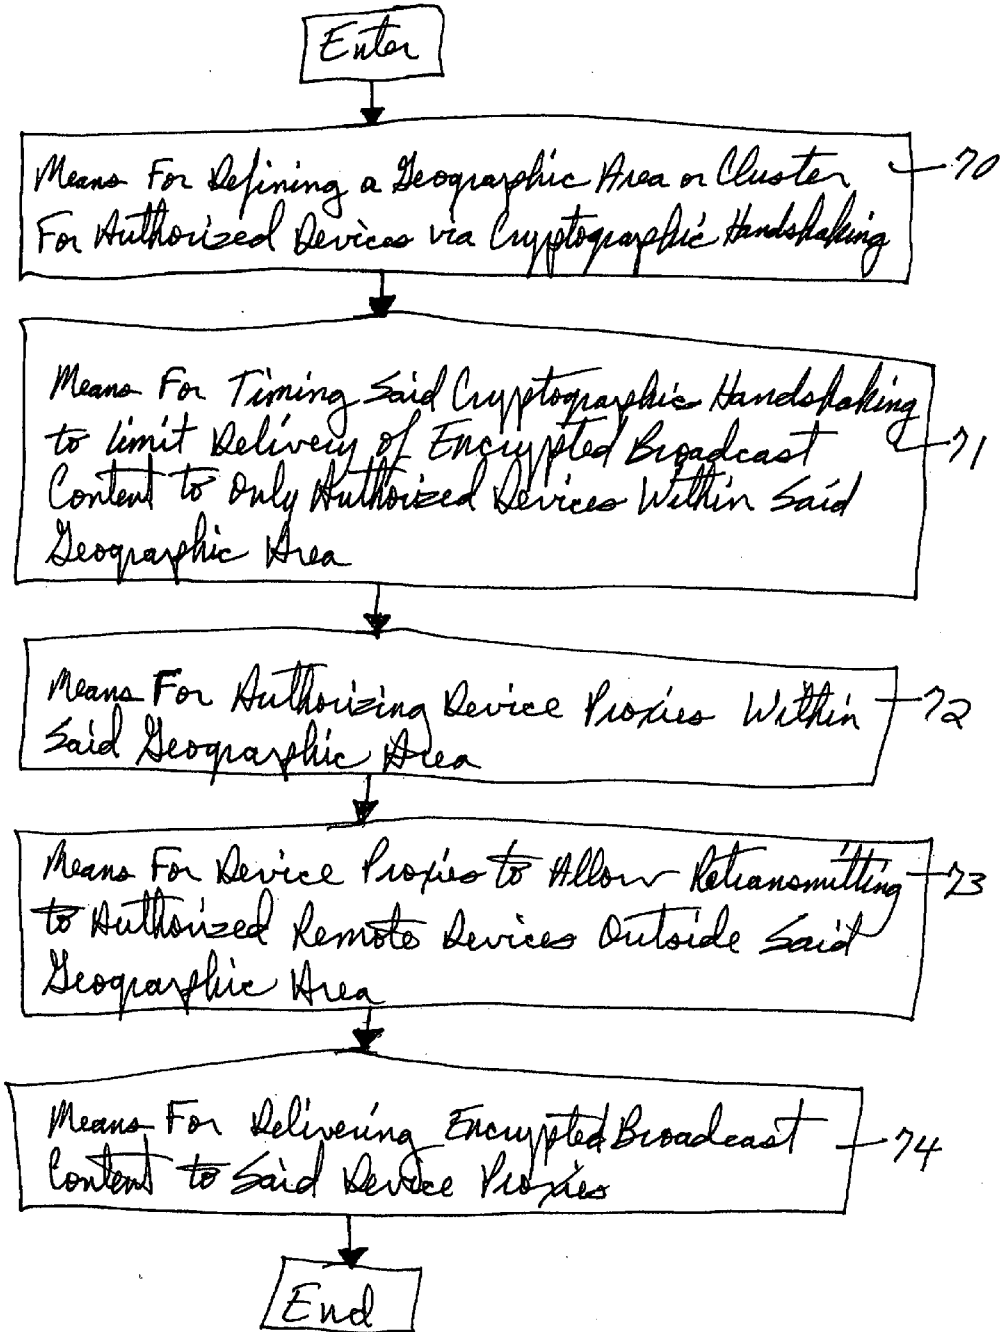 Enter
Means For Defining a Geographic Area or Cluster
70
For Authorized Devices via Cryptographic Handshaking
Means For Timing Said Cryptographic Handshaking
to limit Delivery of Encrypted Broadcast
71
Content to Only Authorized Devices Within Said
Geographic Area
Means For Authorizing Device Proxies Within
72
Said Geographic Area
Means For Device Proxies to Allow Retransmitting
73
to Authorized Remote Devices Outside Said
Geographic Area
Means For Delivering Encrypted Broadcast
74
Content to Said Device Proxies
End